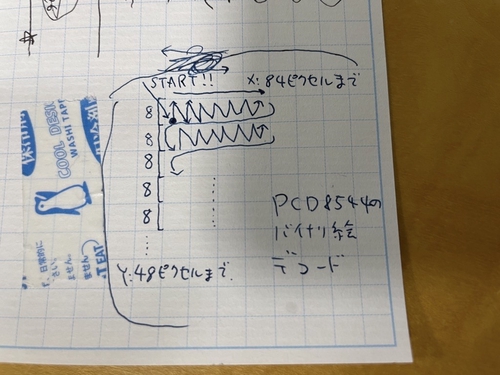 START!!
X:84ピクセルまで
8
8
8
8
8
Y:48ピクセルまで
PCD8544の
バイナリ絵
デコード
COOL DESK
WASHI TAPE